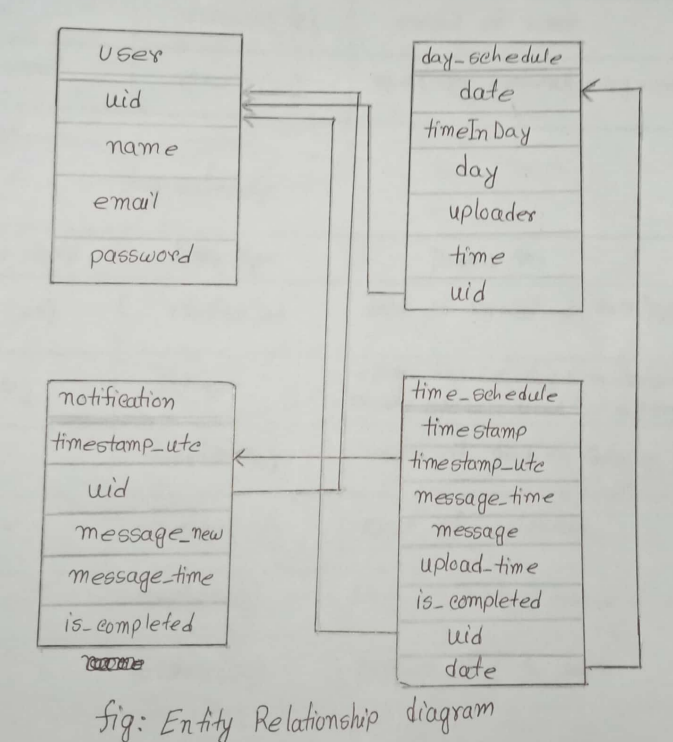 user
uid
name
email
password
day_schedule
date
timeInDay
day
uploader
time
uid
notification
timestamp_utc
uid
message_new
message_time
is_completed
time_schedule
timestamp
timestamp_utc
message_time
message
upload_time
is_completed
uid
date
fig: Entity Relationship diagram